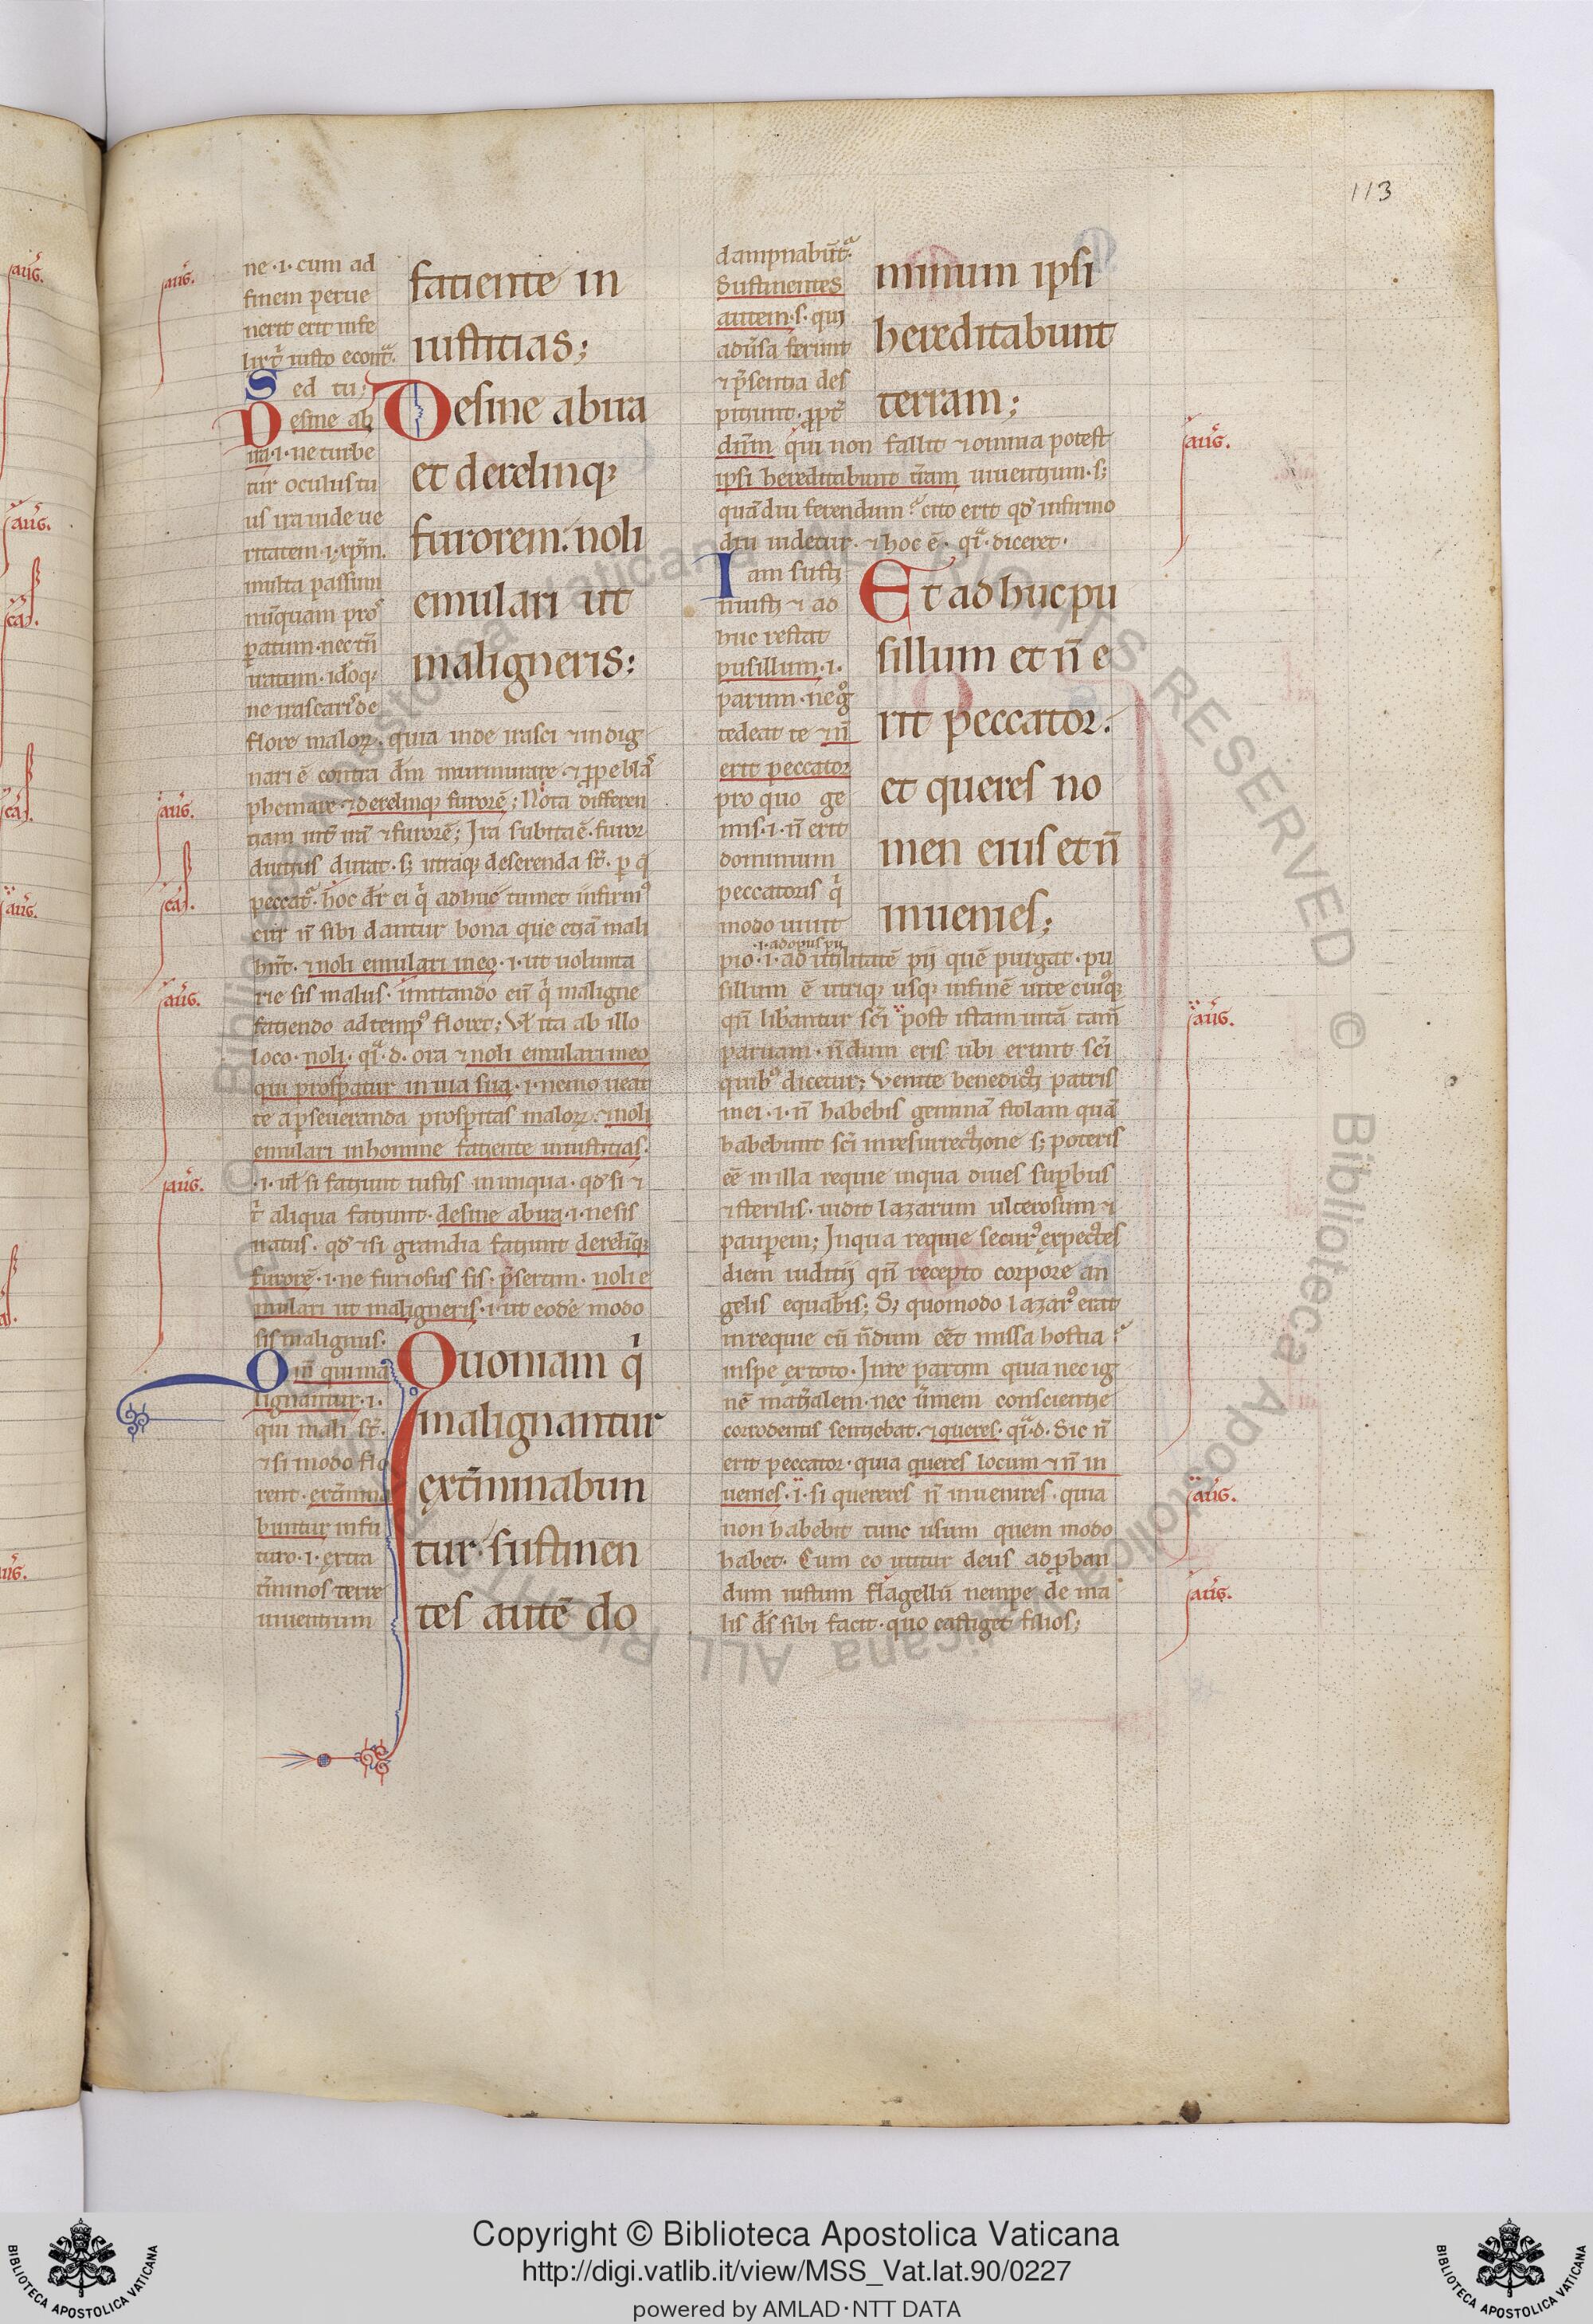 113
aug̃.
ne ·i· cum ad
finem perue
nerit erit infe
lix
iusto econt̃.
Sed tu;
Desine ab
ira ·i· ne turbe
tur oculus tu
us ira uide ue
ritatem ·i· xp̃m.
multa passum
nũquam pros
ꝑatum · nec tñ
iratum · ideoq;
ne irascaris de
facientem in
iusticias;
Desine ab ira
et derelinq;
furorem: noli
emulari ut
maligneris:
flore maloꝝ · quia inde irasci ⁊ indig
nari ẽ contra dm̃ murmurare ⁊
phemare ⁊ derelinq; furorẽ; Nota differen
tiam int̃ irã ⁊ furorẽ; Ira subita ẽ · furor
diutius durat · s; utraq; deserenda st̃ · ꝑ q̃
peccat̃ · hoc dr̃ ei q̃ adhuc tumet infirm⁹
cur ñ sibi dantur bona que etiã mali
hñt · ⁊ noli emulari in eo ·i· ut uolunta
rie sis malus · imitando eũ q̃ maligne
faciendo ad temp⁹ floret; Vł ita ab illo
loco · noli · q̃ · d · ora ⁊ noli emulari in eo
qui prosꝑatur in uia sua ·i· nemo ueat
te a ꝑseueranda prosꝑitas maloꝝ · ⁊ noli
emulari in homine faciente iniusticias ·
·i· uł si faciunt iustis iniqua · qd̃ si ⁊
t̃ aliqua faciunt · desine ab ira ·i· ne sis
iratus · qd̃ ⁊ si grandia faciunt derelĩq;
furorẽ ·i· ne furiosus sis · p̃sertim · noli e
mulari ut maligneris ·i· ut eodẽ modo
sis malignus ·
Qm̃ qui ma
lignantur ·i·
qui mali st̃ ·
⁊ si modo flo
rent · ext̃mina
buntur in fu
turo ·i· extra
t̃minos terre
uiuentium
Quoniam q̃
malignantur
ext̃minabun
tur · sustinen
tes autẽ do
aug̃.
cas̃.
aug̃.
aug̃.
dampnabũt̃
Sustinentes
autem · s · qui
adũsa ferunt
⁊ p̃sentia des
piciunt · ꝓpt̃
minum ipsi
hereditabunt
terram;
dñm qui non fallit ⁊ omnia potest
ipsi hereditabunt t̃ram uiuentium · s;
quãdiu ferendum? cito erit qd̃ infirmo
diu uidetur · ⁊ hoc ẽ · q̃ · diceret ·
Iam susti
nuisti ⁊ ad
huc restat
pusillum ·i·
parum · ne g̊
tedeat te ⁊ ñ
erit peccator
pro quo ge
mis ·i· ñ erit
dominium
peccatoris q̃
modo uiuit
Et adhuc pu
sillum et ñ e
rit peccator:
et queres lo
cum eius et ñ
inuenies;
·i· ad opus pii
pio ·i· ad utilitatẽ pij quẽ purgat · pu
sillum ẽ utriq; usq; in finẽ uite cuiusq;
qñ libantur sc̃i post istam uitã tam̃
paruam · ñdum eris ubi erunt sc̃i
quib⁹ dicetur; Venite benedicti patris
mei ·i· ñ habebis geminã stolam quã
habebunt sc̃i in resurrectione s; poteris
eẽ in illa requie in qua diues suꝑbus
⁊ sterilis · uidit lazarum ulcerosum ⁊
pauꝑem; In qua requie secur⁹ expectes
diem iudicij qñ recepto corpore an
gelis equabis; S; quomodo lazar⁹ erat
in requie cũ ñdum eẽt missa hostia?
in spe ex toto · In re partim quia nec ig
nẽ mat̃ialem · nec ũmem conscientie
corrodentis sentiebat · ⁊ queres · q̃ · d · Sic ñ
erit peccator · quia queres locum ⁊ ñ in
uenies ·i· si quereres ñ inuenires · quia
non habebit tunc usum quem modo
habet · Cum eo utitur deus ad ꝓban
dum iustum flagellũ nempe de ma
lis d̃s sibi facit · quo castiget filios;
aug̃.
aug̃.
aug̃.
aug̃.
Copyright © Biblioteca Apostolica Vaticana
http://digi.vatlib.it/view/MSS_Vat.lat.90/0227
powered by AMLAD·NTT DATA
BIBLIOTECA APOSTOLICA VATICANA
BIBLIOTECA APOSTOLICA VATICANA